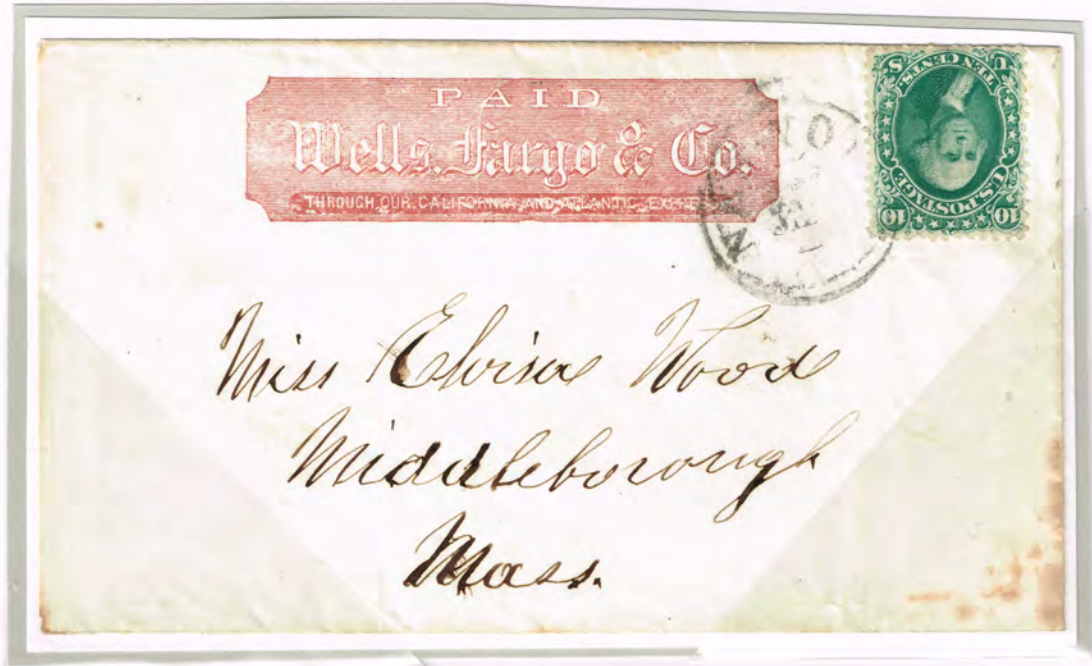 PAID
Wells, Fargo & Co.
THROUGH OUR CALIFORNIA AND ATLANTIC EXPRESS.
U.S. POSTAGE
10 10
TEN CENTS.
U S
Miss Elvira Wood
Middleborough
Mass.